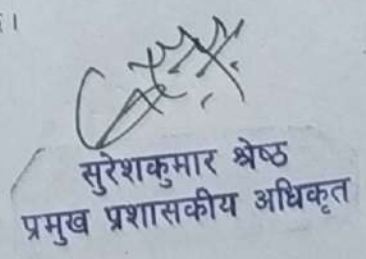 ।
सुरेशकुमार श्रेष्ठ
प्रमुख प्रशासकीय अधिकृत